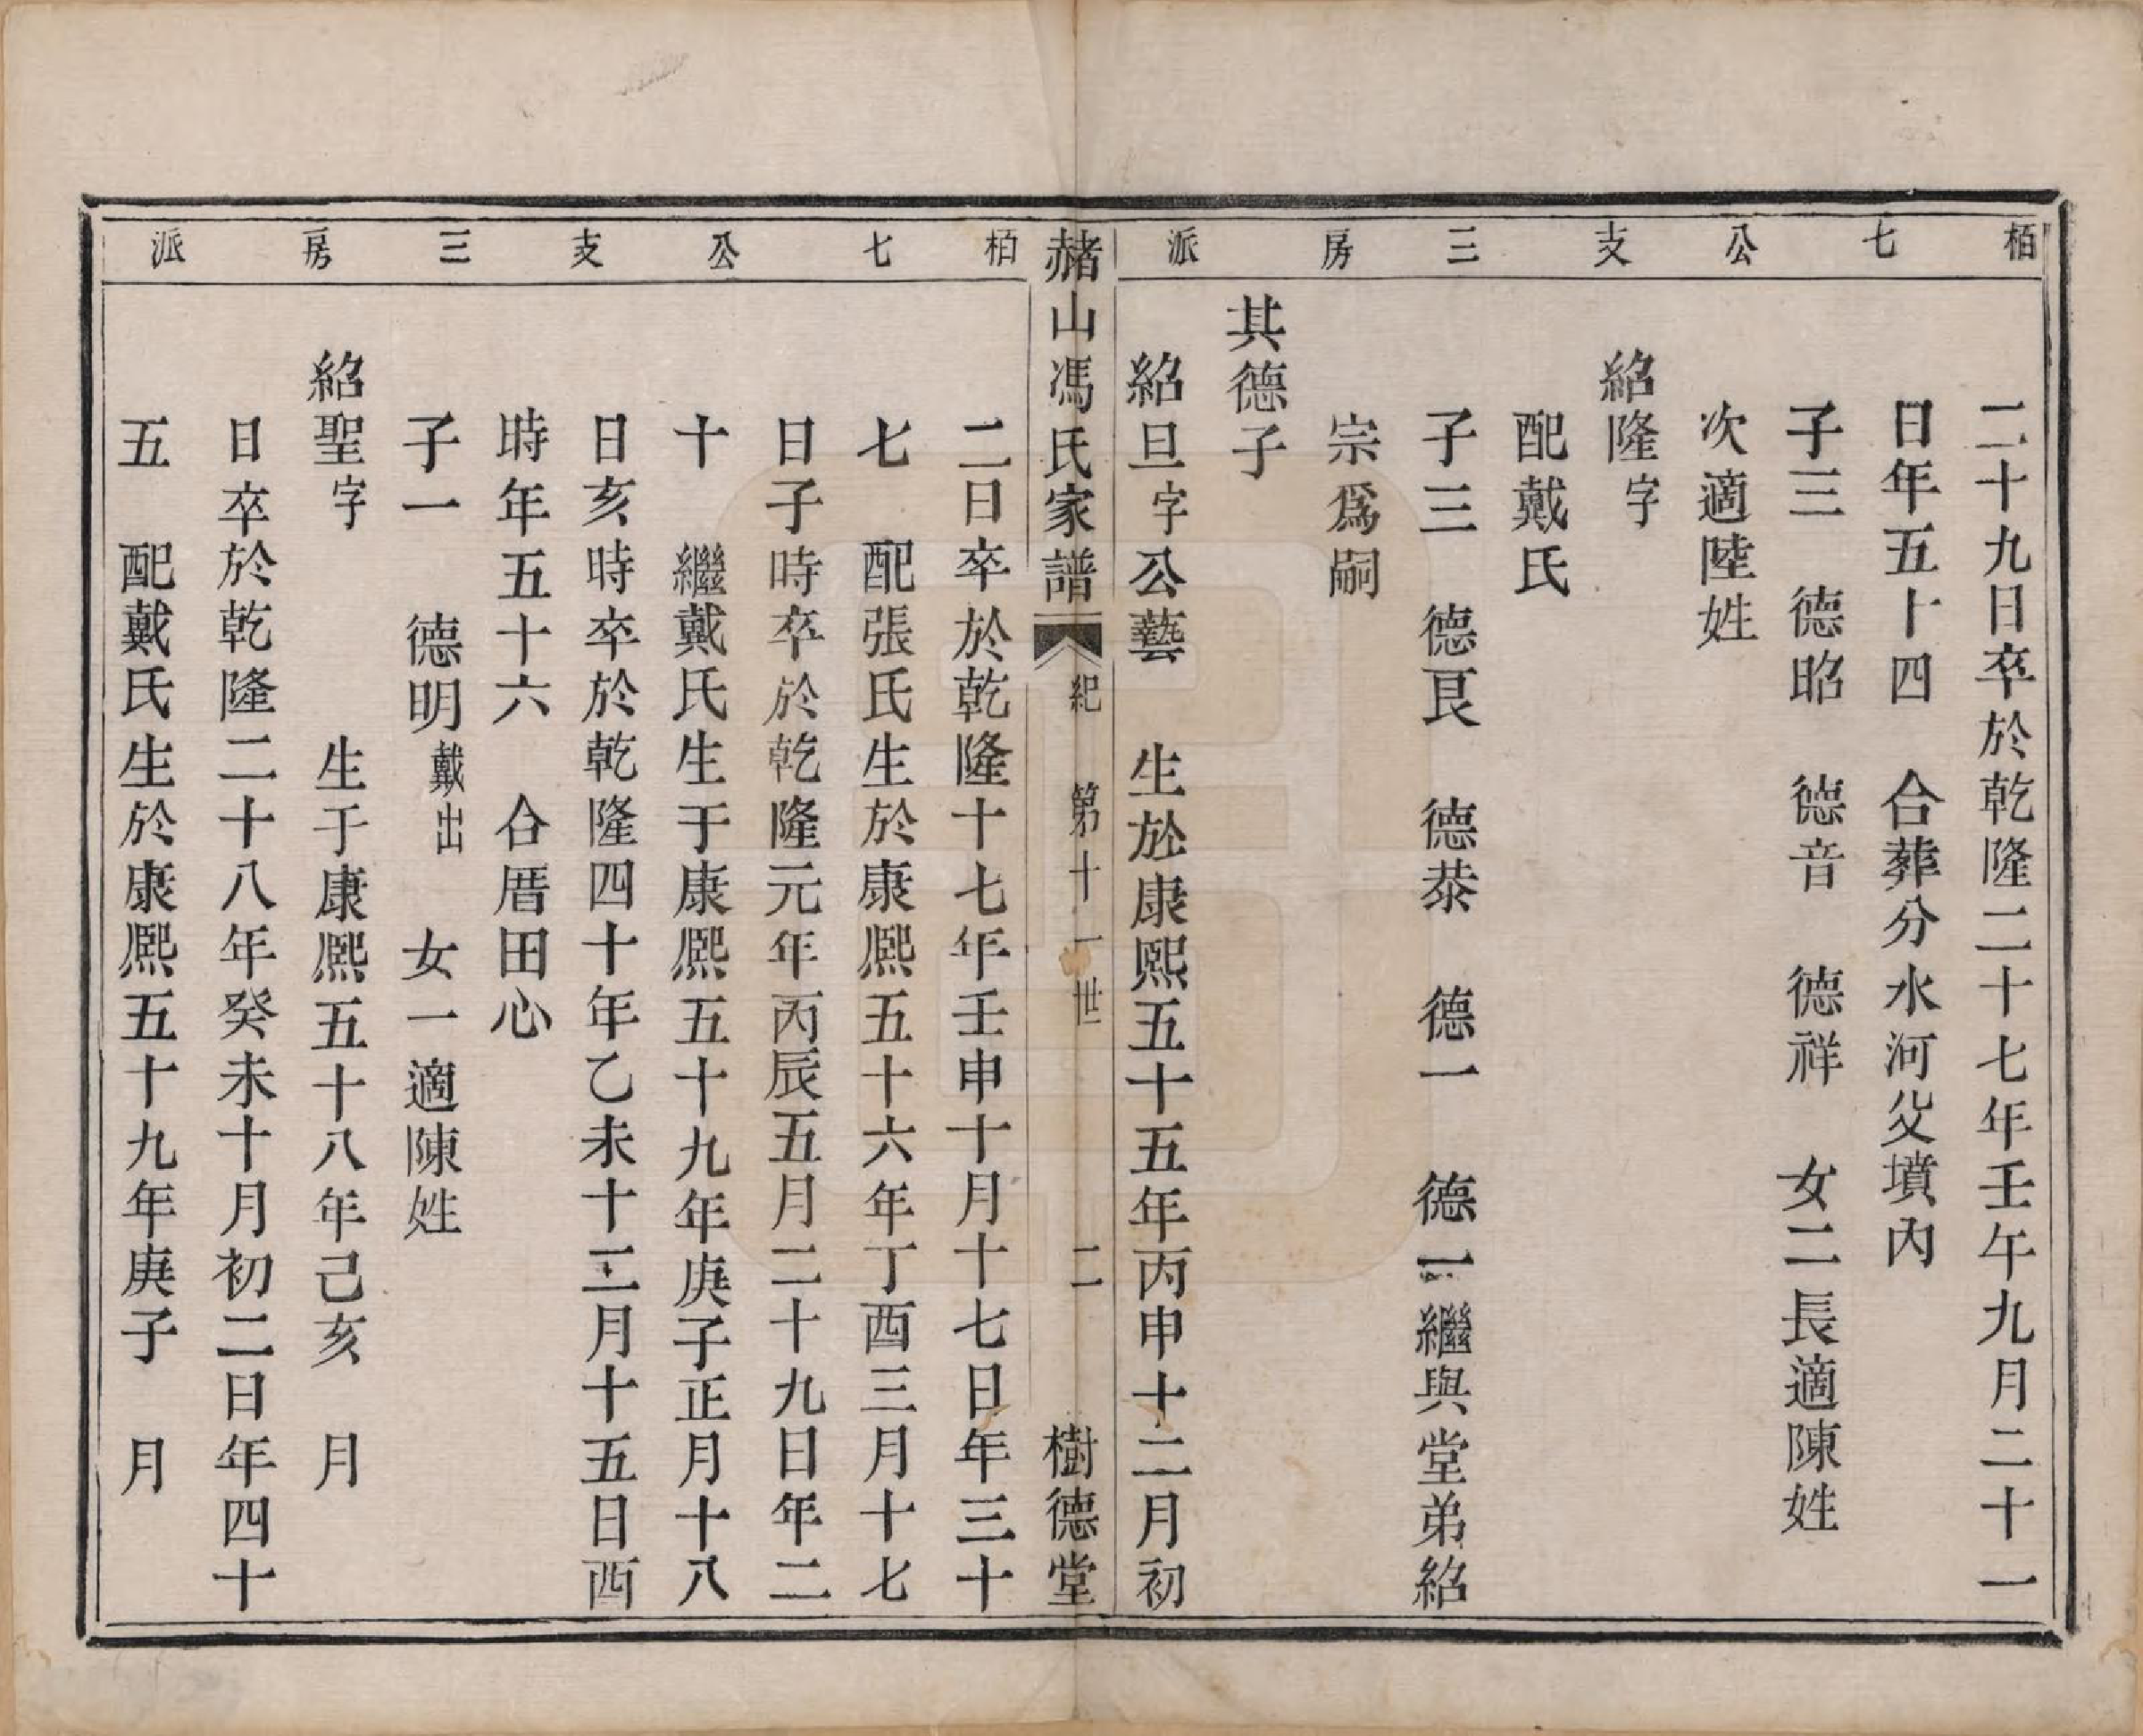 栢七公支三房派
二十九日卒於乾隆二十七年壬午九月二十一
日年五十四　合葬分水河父墳內
子三　德昭　德音　德祥　女二長適陳姓
次適陸姓
紹隆字
配戴氏
子三　德艮　德恭　德一　德一繼與堂弟紹
宗爲嗣
其德子
紹旦字公藝　生於康熙五十五年丙申十二月初
赭山馮氏家譜　紀　第十一世　二　樹德堂
栢七公支三房派
二日卒於乾隆十七年壬申十月十七日年三十
七　配張氏生於康熙五十六年丁酉三月十七
日子時卒於乾隆元年丙辰五月二十九日年二
十　繼戴氏生于康熙五十九年庚子正月十八
日亥時卒於乾隆四十年乙未十二月十五日酉
時年五十六　合厝田心
子一　德明戴出　女一適陳姓
紹聖字　生于康熙五十八年己亥　月
日卒於乾隆二十八年癸未十月初二日年四十
五　配戴氏生於康熙五十九年庚子　月